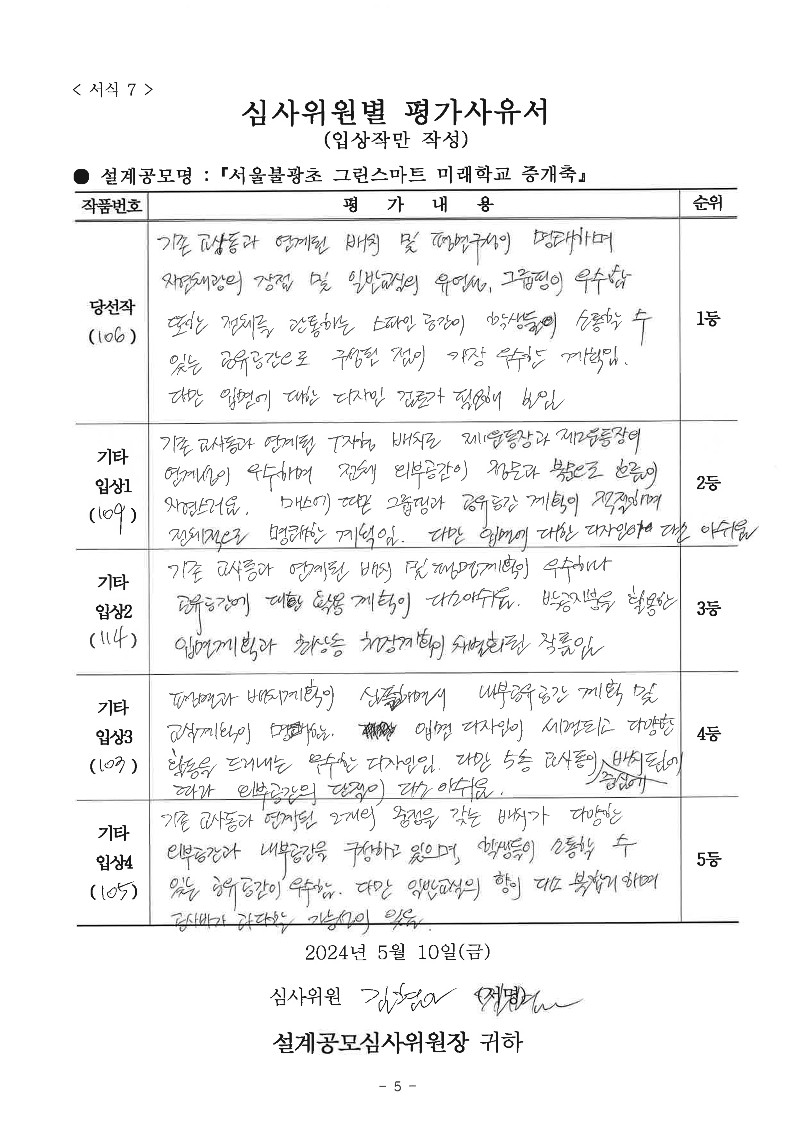 < 서식 7 >
심사위원별 평가사유서
(입상작만 작성)
● 설계공모명 : 『서울불광초 그린스마트 미래학교 증개축』
작품번호 평 가 내 용 순위
당선작
(106)
기존 교사동과 연계된 배치 및 평면구성이 명쾌하며
자연채광의 장점 및 일반교실의 유연성, 그룹핑이 우수함
또한 전체를 관통하는 스파인 공간이 학생들이 소통할 수
있는 공유공간으로 구성된 점이 가장 우수한 계획임.
다만 입면에 대한 디자인 검토가 필요해 보임
1등
기타
입상1
(109)
기존 교사동과 연계된 T자형 배치로 제1운동장과 제2운동장의
연계성이 우수하며 전체 외부공간이 정문과 북으로 흐름이
자연스러움. 매스에 따른 그룹핑과 공유공간 계획이 적절하며
전체적으로 명쾌한 계획임. 다만 입면에 대한 디자인이 다소 아쉬움
2등
기타
입상2
(114)
기존 교사동과 연계된 배치 및 평면계획이 우수하나
공유공간에 대한 활용 계획이 다소아쉬움. 을 활용한
입면계획과 최상층 천장계획이 차별화된 작품임
3등
기타
입상3
(103)
평면과 배치계획이 심플하면서 내부공유공간 계획 및
교실계획이 명쾌함. 입면 디자인이 세련되고 다양한
활동을 드러내는 우수한 디자인임. 다만 5층 교사동이 중심에 배치됨에
따라 외부공간의 단절이 다소 아쉬움.
4등
기타
입상4
(105)
기존 교사동과 연계된 2개의 중정을 갖는 배치가 다양한
외부공간과 내부공간을 구성하고 있으며, 학생들이 소통할 수
있는 공유공간이 우수함. 다만 일반교실의 향이 다소 복잡하며
공사비가 과다할 가능성이 있음.
5등
2024년 5월 10일(금)
심사위원 (서명)
설계공모심사위원장 귀하
- 5 -